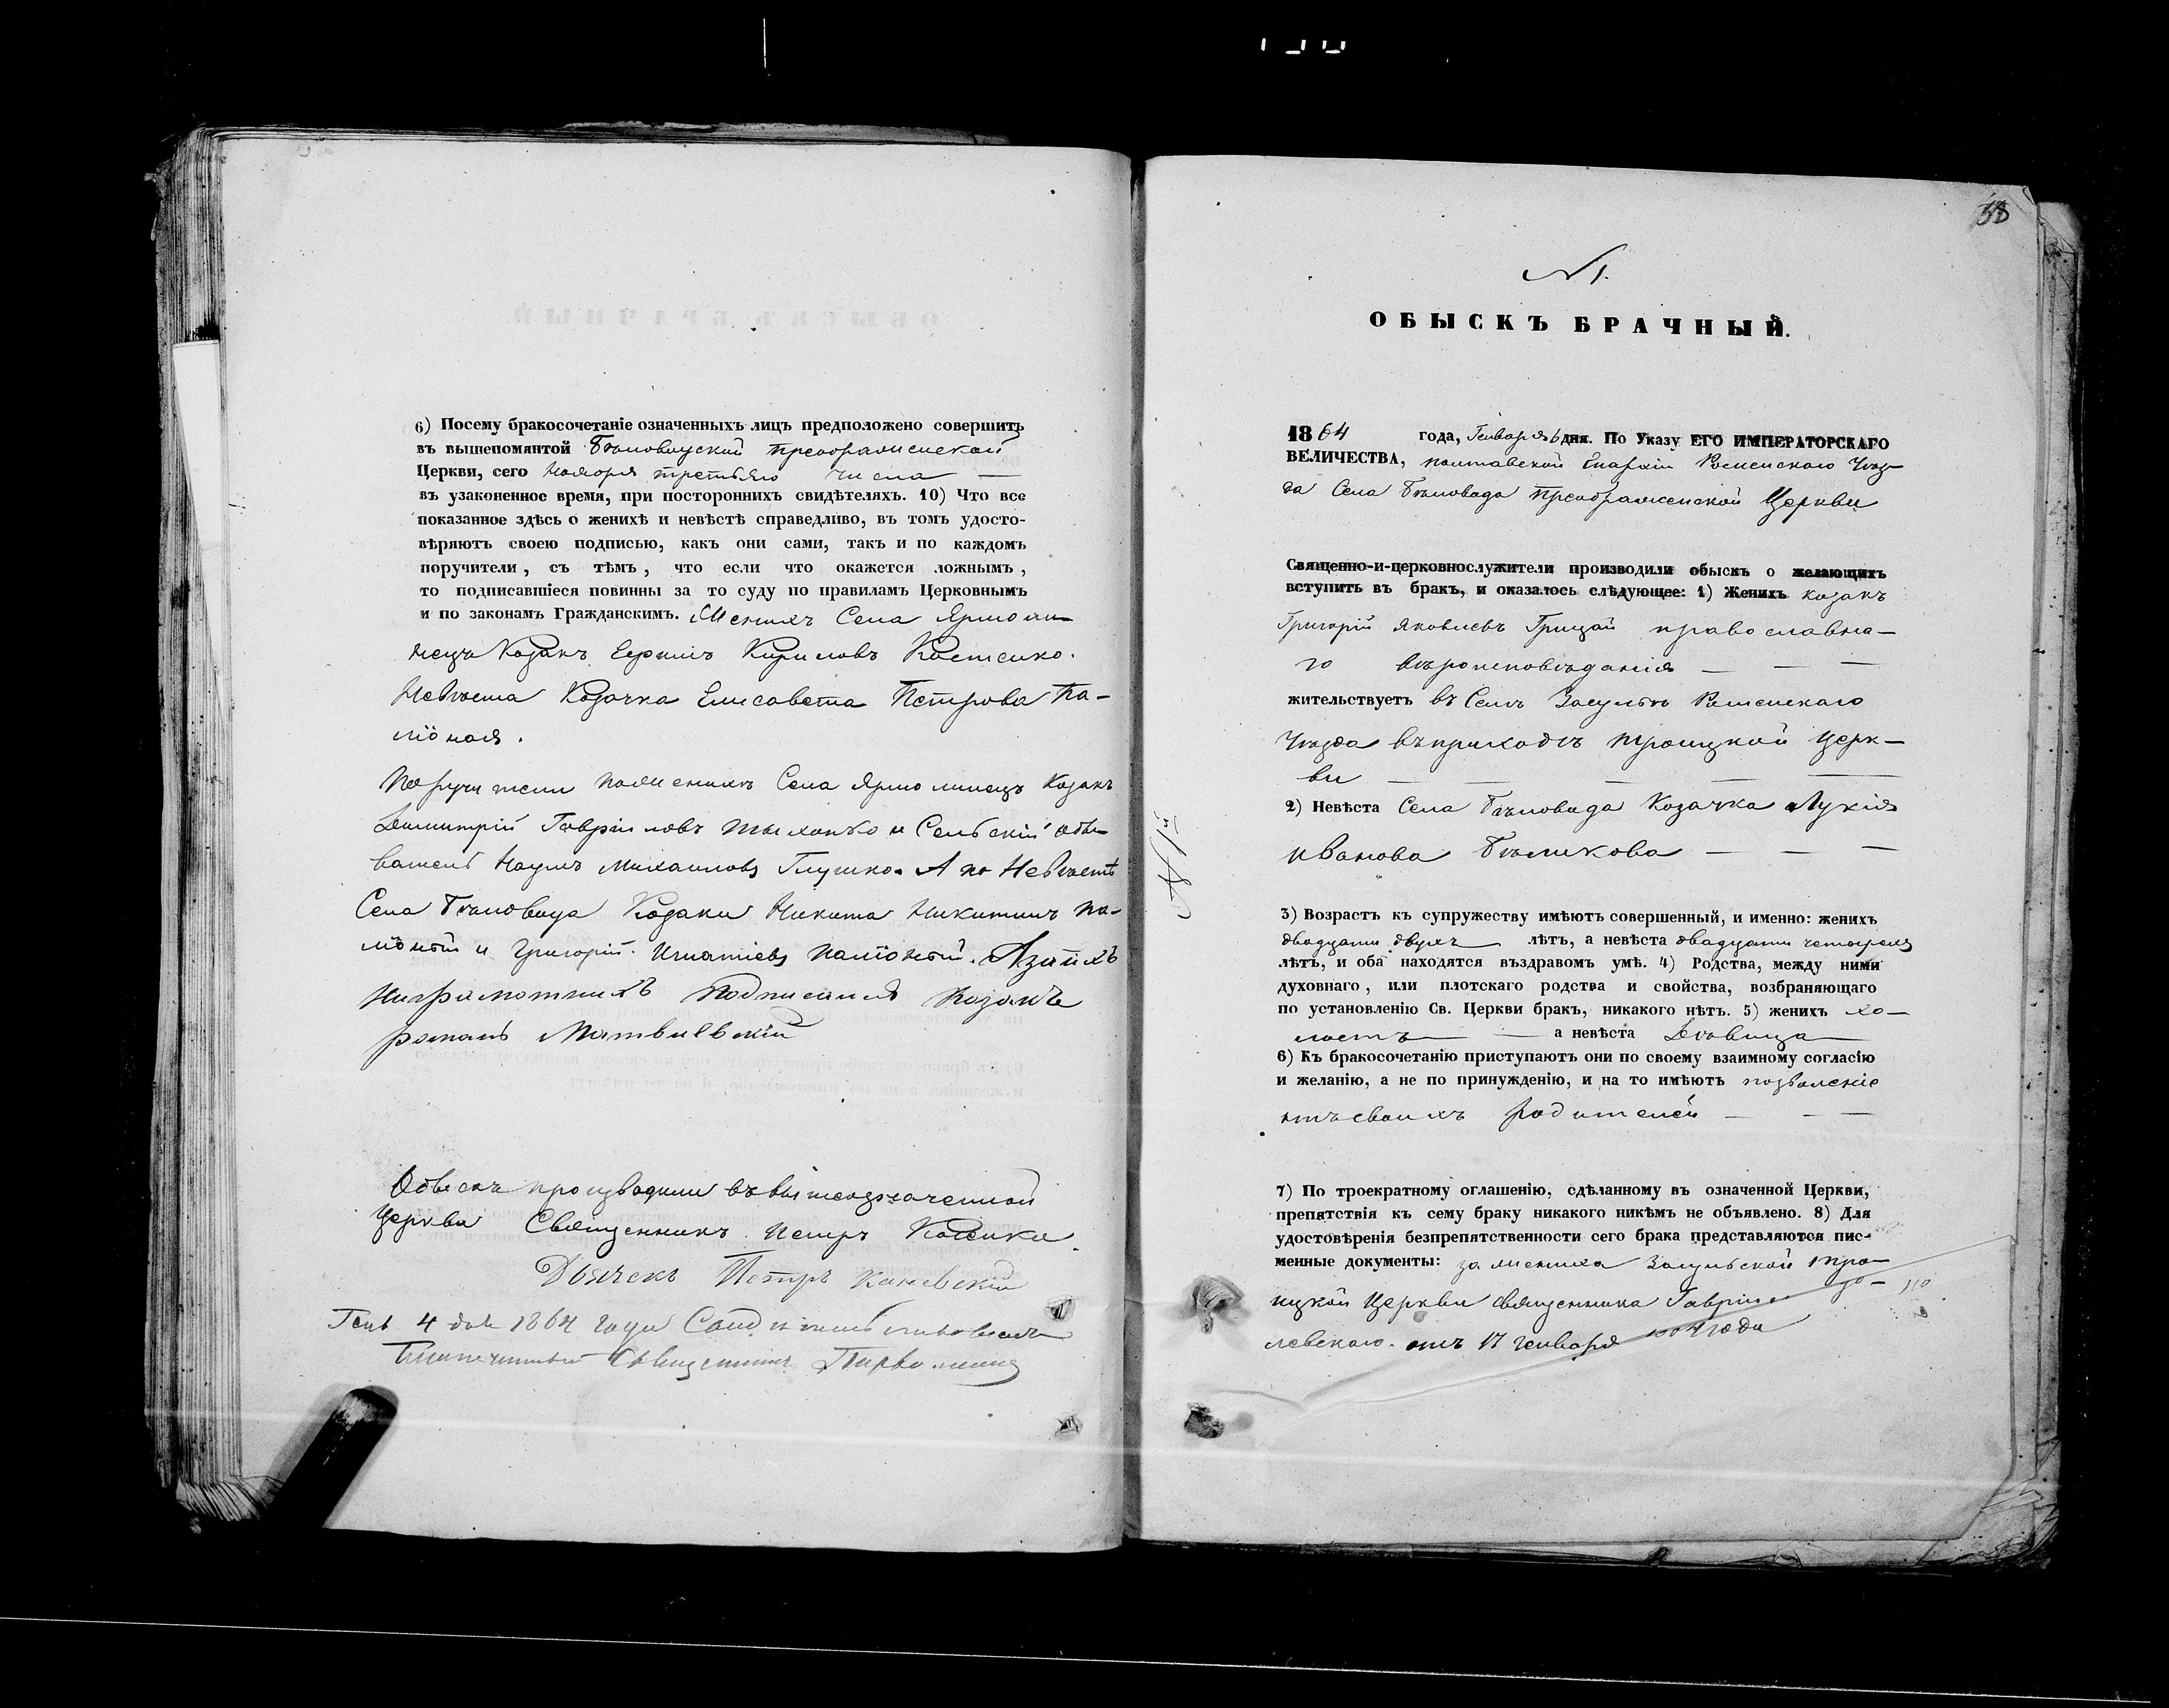 6) Посему бракосочетаніе означенныхъ лицъ предположено совершить
въ вышепомянтой Бѣловодской преображенской
Церкви, сего Ноября третьяго числа —
въ узаконенное время, при постороннихъ свидѣтеляхъ. 10) Что все
показанное здѣсь о женихѣ и невѣстѣ справедливо, въ томъ удосто-
вѣряютъ своею подписью, какъ они сами, такъ и по каждомъ
поручители, съ тѣмъ, что если что окажется ложнымъ,
то подписавшіеся повинны за то суду по правиламъ Церковнымъ
и по законамъ Гражданскимъ. Женихъ Села Ярмоли-
нецъ Козакъ Ефимъ Кириловъ Костенко.
Невѣста Козачка Елисавета Петрова Па-
ліоная.
Поручители по женихѣ Села Ярмолинецъ Козакъ
Димитрій Гавріиловъ и Сельскій обы-
ватель Наумъ Михаиловъ Глушко. А по Невѣстѣ
Села Бѣловода Козаки Никита Никитинъ Па-
ліоный и Григорій Игнатіевъ Паліоный. А за ихъ
Неграмотныхъ Подписался Козакъ
романъ Матвіевскій
Обыскъ производили въ вышеозначенной
Церкви Священникъ Петръ
Дьячекъ Петръ Каневскій
Генв 4 дня 1864 года
Благочинный Священникъ
38
N 1.
ОБЫСКЪ БРАЧНЫЙ.
1864 года, Генваря 6 дня. По Указу ЕГО ИМПЕРАТОРСКАГО
ВЕЛИЧЕСТВА, полтавской Епархіи Роменскаго Уѣз-
да Села Бѣловода Преображенской Церкви
Священно-и-церковнослужители производили обыскъ о желающихъ
вступить въ бракъ, и оказалось слѣдующее: 1) Женихъ козакъ
Григорій Яковлевъ Грицай православна-
го вѣроисповѣданія — — —
жительствуетъ въ Селѣ Засульѣ Роменскаго
Уѣзда въ приходѣ троицкой церк-
ви — — — — —
2) Невѣста Села Бѣловода Козачка Лукія
Иванова Бѣликова — — —
N 1й
3) Возрастъ къ супружеству имѣютъ совершенный, и именно: женихъ
двадцати двухъ — лѣтъ, а невѣста двадцати четырехъ
лѣтъ, и оба находятся въздравомъ умѣ. 4) Родства, между ними
духовнаго, или плотскаго родства и свойства, возбраняющаго
по установленію Св. Церкви бракъ, никакого нѣтъ. 5) женихъ хо-
лостъ — — а невѣста Дѣвица —
6) Къ бракосочетанію приступаютъ они по своему взаимному согласію
и желанію, а не по принужденію, и на то имѣютъ позволеніе
отъ своихъ родителей — — —
7) По троекратному оглашенію, сдѣланному въ означенной Церкви,
препятствія къ сему браку никакого никѣмъ не объявлено. 8) Для
удостовѣренія безпрепятственности сего брака представляются пис-
менные документы: за жениха Засульской тро-
ицкой Церкви священника
левскаго. отъ 17 генваря 1864 года